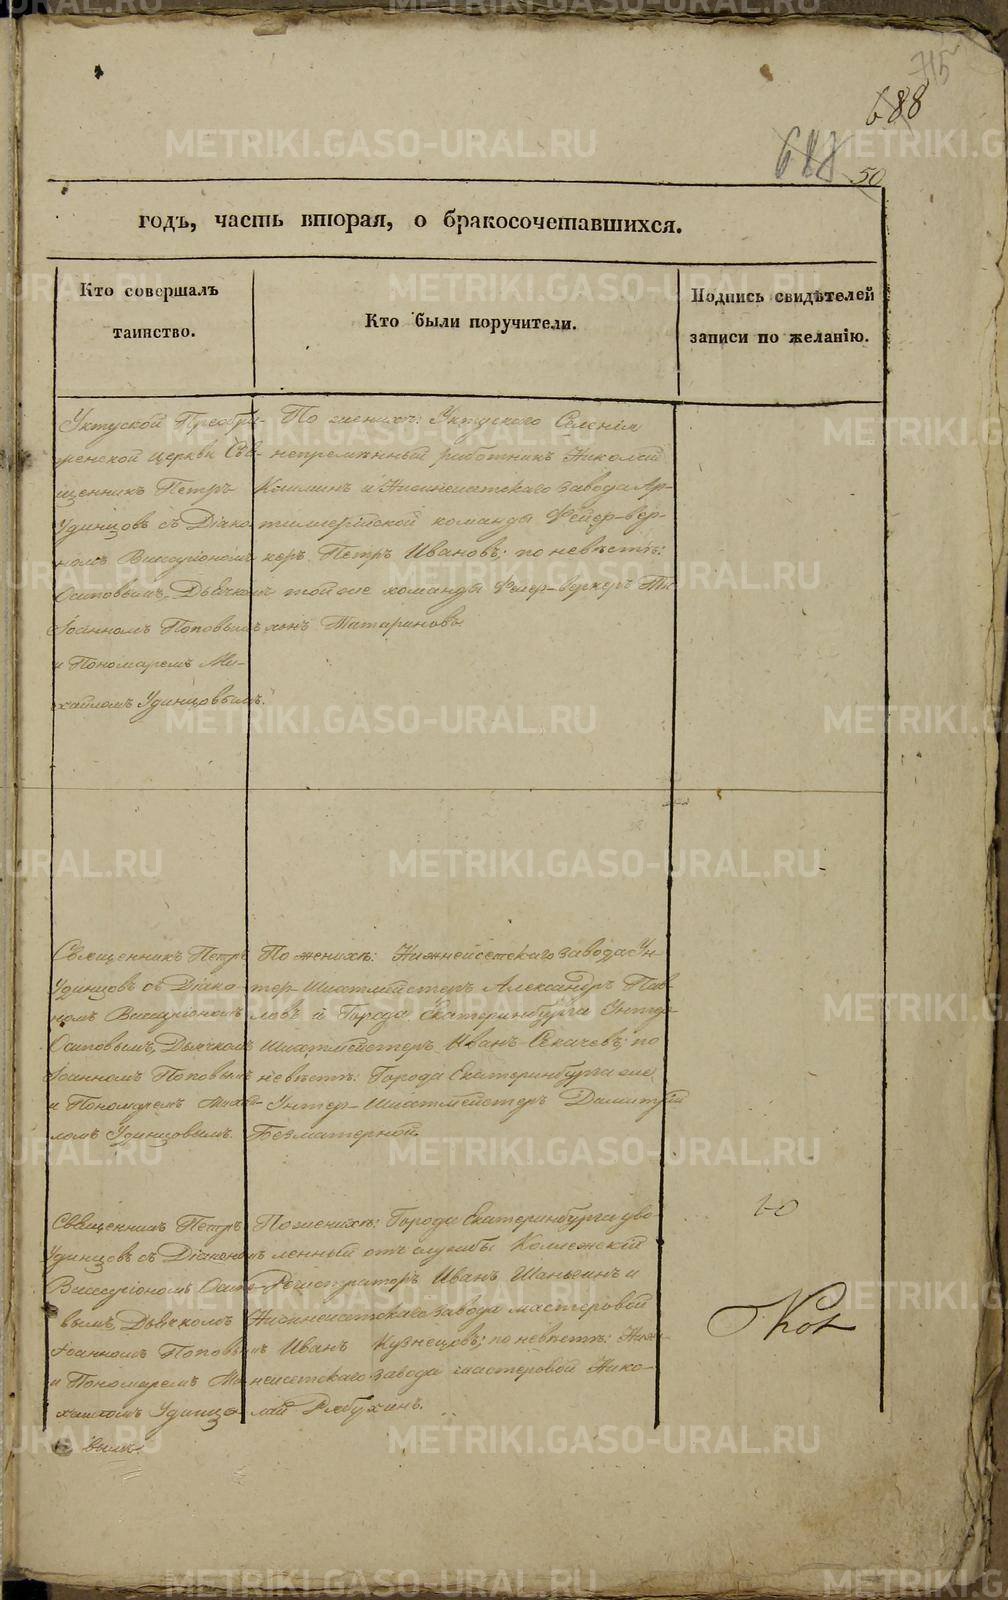 715
688
688 50
годъ, часть вторая, о бракосочетавшихся.
Кто совершалъ
таинство.
Кто были поручители.
Подпись свидѣтелей
записи по желанію.
Уктуской Преобра-
женской церкви Свя-
щенникъ Петръ
Удинцовъ съ Діако
номъ Виссаріономъ
Осиповымъ, Дьячкомъ
Іоанномъ Поповымъ
и Пономаремъ Ми-
хаиломъ Удинцовымъ.
По женихѣ: Уктускаго Селенія
непремѣнный работникъ Николай
и Нижнеисетскаго завода Ар-
тиллерійской команды Фейер-вер-
керъ Петръ Ивановъ; по невѣстѣ:
той же команды Фейер-веркеръ Ти
хонъ Татариновъ
Священникъ Петръ
Удинцовъ съ Діако-
номъ Виссаріономъ
Осиповымъ, Дьячкомъ
Іоанномъ Поповымъ
и Пономаремъ Михаи-
ломъ Удинцовымъ.
По женихѣ: Нижнеисетскаго завода Ун
тер-Шихтмейстеръ Александръ Пав
ловъ и Города Екатеринбурга Унтер-
Шихтмейстеръ Иванъ Секачевъ; по
невѣстѣ: Города Екатеринбурга
Унтер-Шихтмейстеръ Димитрій
Безматерной.
Священникъ Петръ
Удинцовъ съ Діакономъ
Виссаріономъ Осипо-
вымъ, Дьячкомъ
Іоанномъ Поповымъ
и Пономаремъ Ми
хаиломъ Удинцо
вымъ.
По женихѣ: Города Екатеринбурга уво
ленный отъ службы Коллежскій
Регистраторъ Иванъ Шаньгинъ и
Нижнеисетскаго завода мастеровой
Иванъ Кузнецовъ; по невѣстѣ: Ниж-
неисетскаго завода мастеровой Нико-
лай Рябухинъ.
METRIKI.GASO-URAL.RU